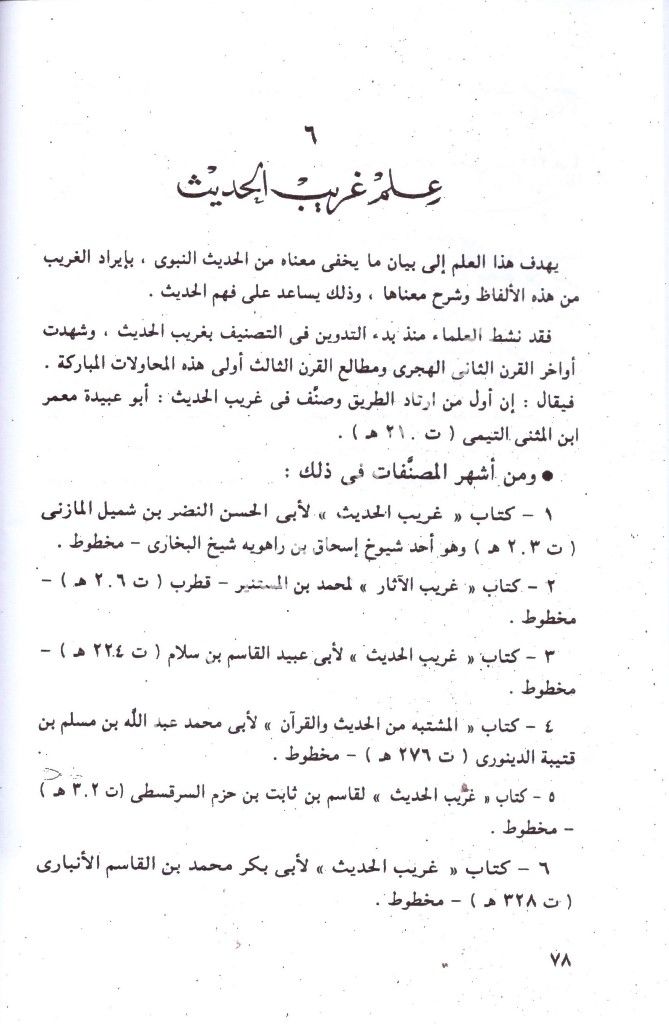 ٦
عِلم غريب الحديث
يهدف هذا العلم إلى بيان ما يخفى معناه من الحديث النبوى ، بإيراد الغريب
من هذه الألفاظ وشرح معناها ، وذلك يساعد على فهم الحديث .
فقد نشط العلماء منذ بدء التدوين فى التصنيف بغريب الحديث ، وشهدت
أواخر القرن الثانى الهجرى ومطالع القرن الثالث أولى هذه المحاولات المباركة .
فيقال : إن أول من ارتاد الطريق وصنَّف فى غريب الحديث : أبو عبيدة معمر
ابن المثنى التيمى ( ت ٢١٠ هـ ) .
● ومن أشهر المصنَّفات فى ذلك :
١ – كتاب « غريب الحديث » لأبى الحسن النضر بن شميل المازنى
( ت ٢٠٣ هـ ) وهو أحد شيوخ إسحاق بن راهويه شيخ البخارى – مخطوط .
٢ – كتاب « غريب الآثار » لمحمد بن المستنير – قطرب ( ت ٢٠٦ هـ ) –
مخطوط .
٣ – كتاب « غريب الحديث » لأبى عبيد القاسم بن سلام ( ت ٢٢٤ هـ ) –
مخطوط .
٤ – كتاب « المشتبه من الحديث والقرآن » لأبى محمد عبد اللَّه بن مسلم بن
قتيبة الدينورى ( ت ٢٧٦ هـ ) – مخطوط .
٥ – كتاب « غريب الحديث » لقاسم بن ثابت بن حزم السرقسطى (ت ٣٠٢ هـ )
– مخطوط .
٦ – كتاب « غريب الحديث » لأبى بكر محمد بن القاسم الأنبارى
( ت ٣٢٨ هـ ) – مخطوط .
٧٨